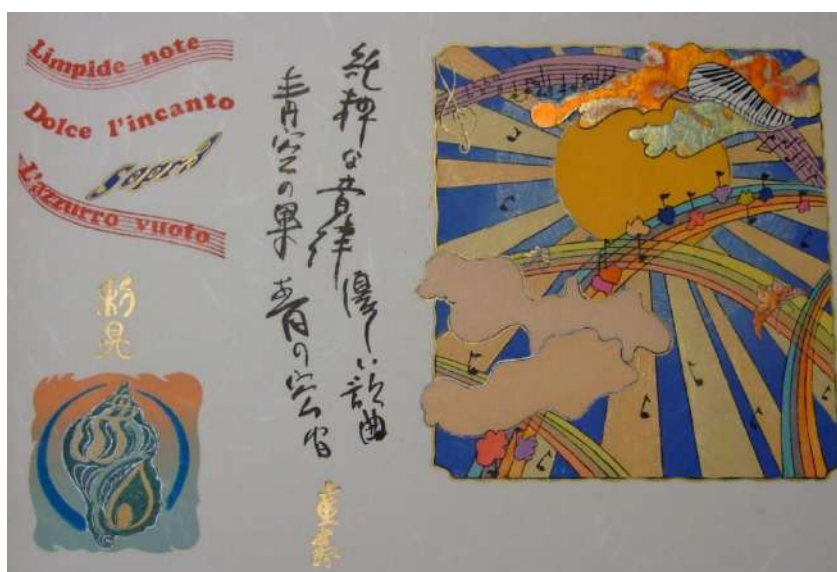 Limpide note
Dolce l'incanto
Sopra
L'azzurro vuoto
純粋な音律優しい歌曲
青空の果 青の
彩晃